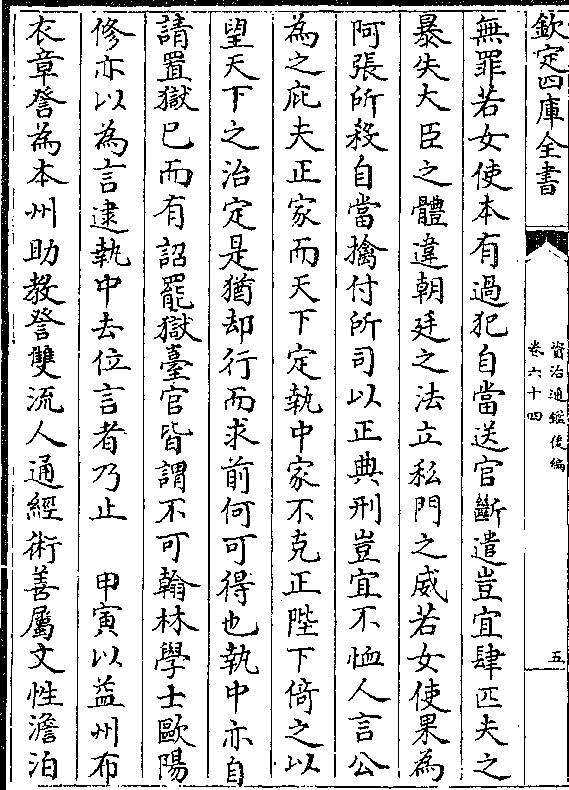 欽定四庫全書
資治通鑑後編
卷六十四
五
無罪若女使本有過犯自當送官斷遣豈宜肆匹夫之
暴失大臣之體違朝廷之法立私門之威若女使果為
阿張所殺自當擒付所司以正典刑豈宜不恤人言公
為之庇夫正家而天下定執中家不克正陛下倚之以
望天下之治定是猶却行而求前何可得也執中亦自
請置獄已而有詔罷獄臺官皆謂不可翰林學士歐陽
修亦以為言逮執中去位言者乃止　甲寅以益州布
衣章詧為本州助教詧雙流人通經術善屬文性澹泊